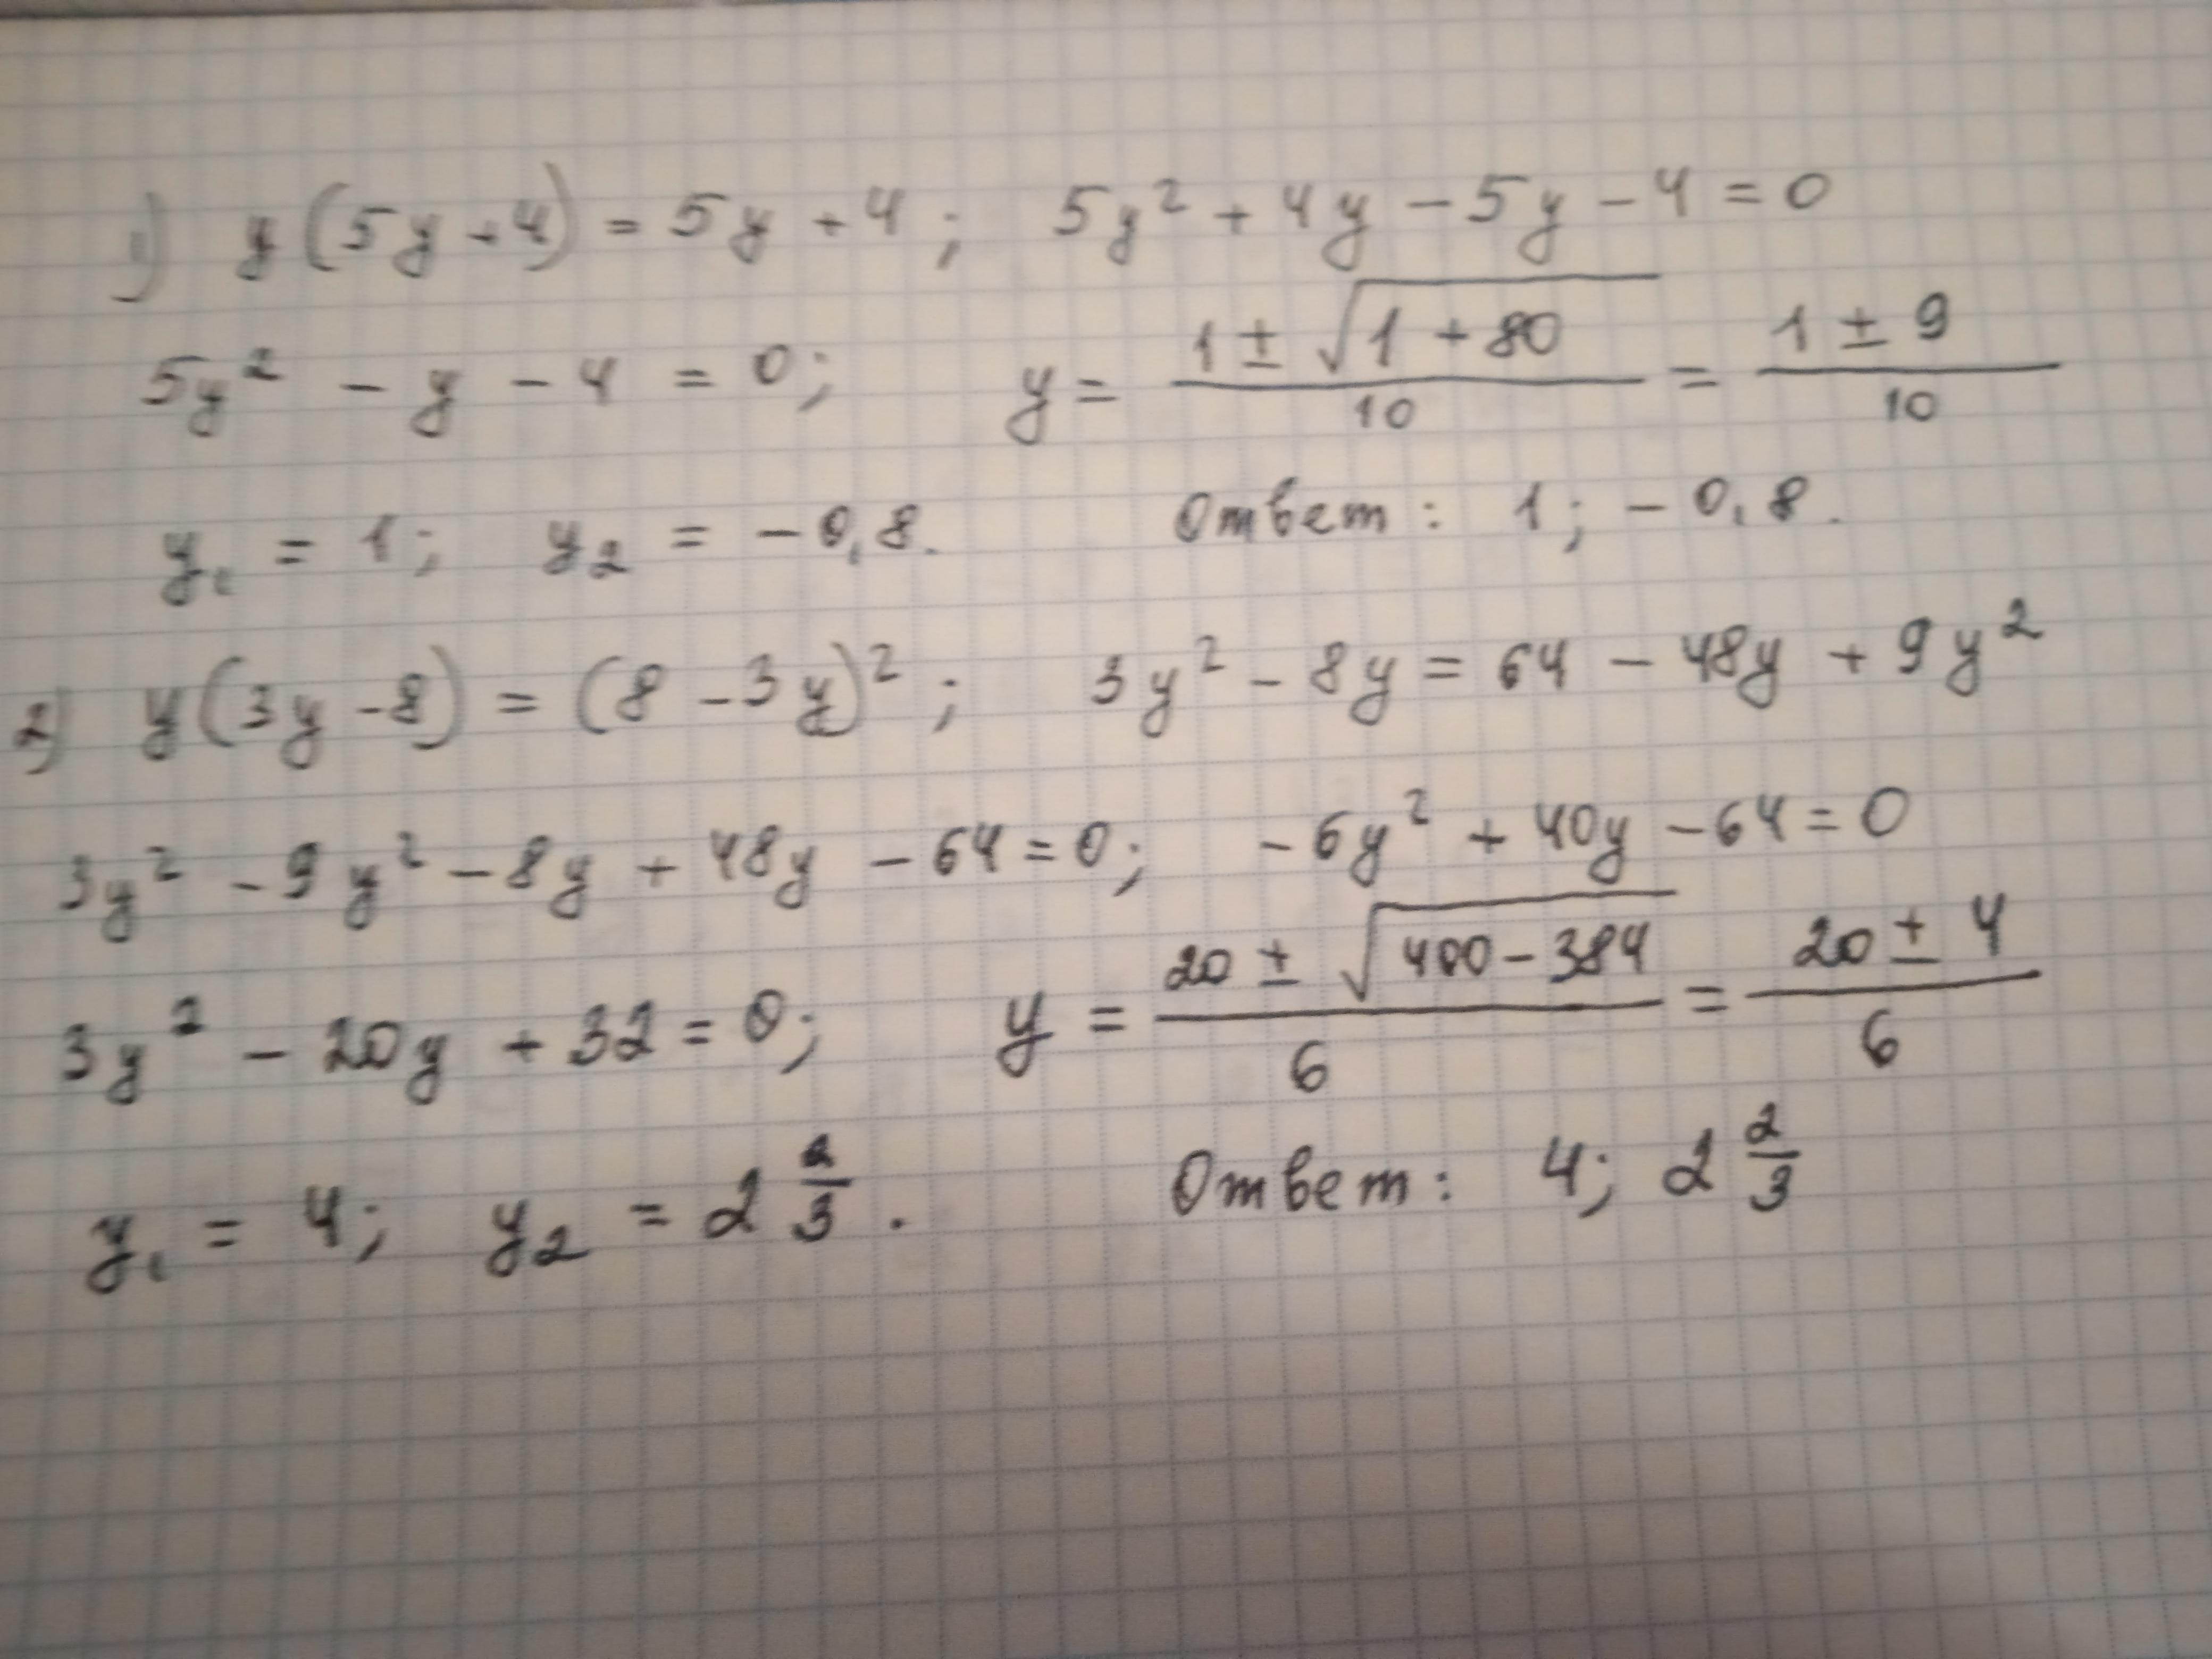 1) y(5y+4) = 5y + 4; 5y² + 4y − 5y − 4 = 0
5y² − y − 4 = 0; y = (1 ± √(1 + 80))/10 = (1 ± 9)/10
y₁ = 1; y₂ = −0,8. Ответ: 1; −0,8.
2) y(3y − 8) = (8 − 3y)²; 3y² − 8y = 64 − 48y + 9y²
3y² − 9y² − 8y + 48y − 64 = 0; −6y² + 40y − 64 = 0
3y² − 20y + 32 = 0; y = (20 ± √(400 − 384))/6 = (20 ± 4)/6
y₁ = 4; y₂ = 2 2/3. Ответ: 4; 2 2/3